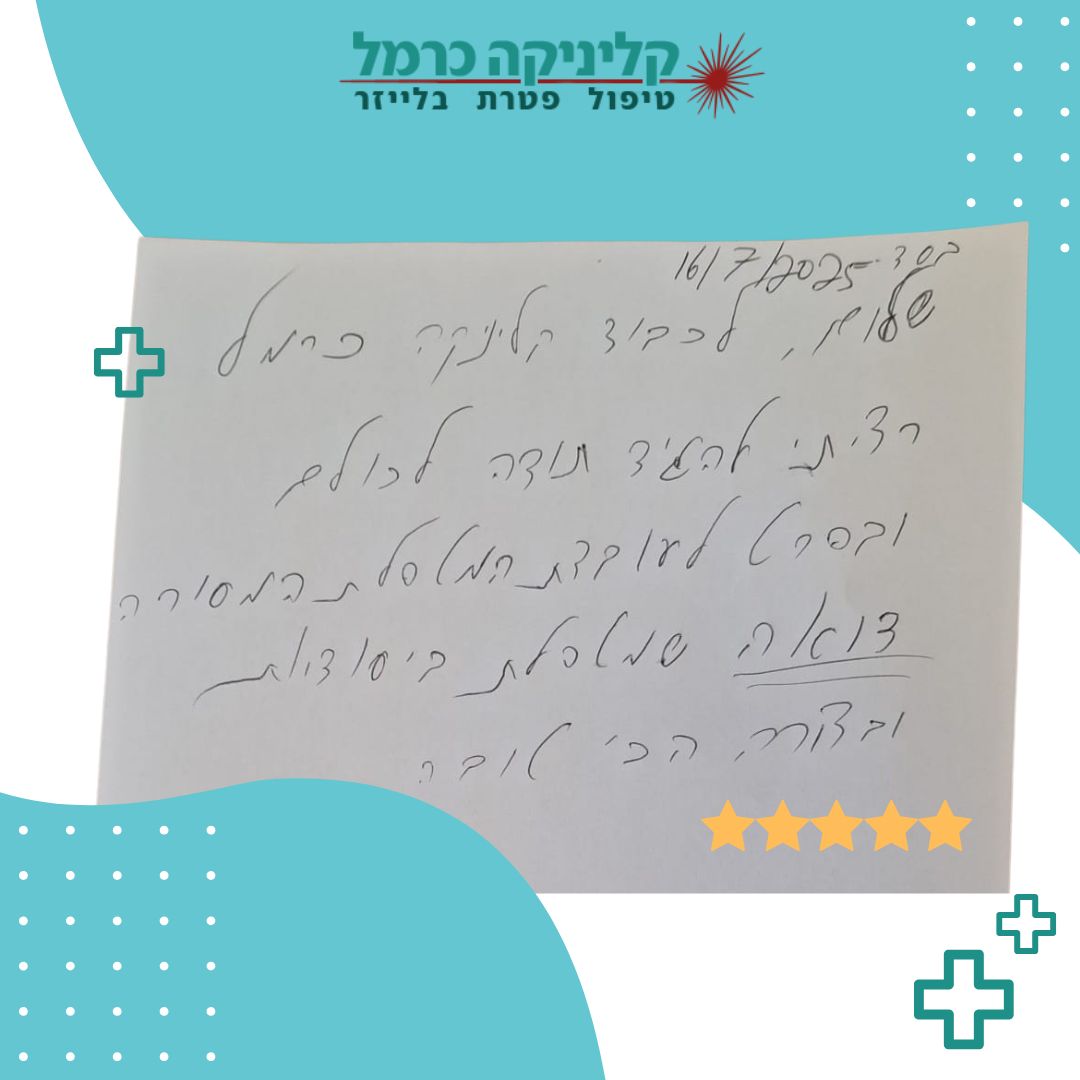 קליניקה כרמל
טיפול פטרת בלייזר
בסד 16/7/2025
שלום, לכבוד קלינקה כרמל
רציתי להגיד תודה לכולם
ובפרט לעובדת המטפלת המסורה
דואה שמטפלת ביסודיות
ובצורה הכי טובה